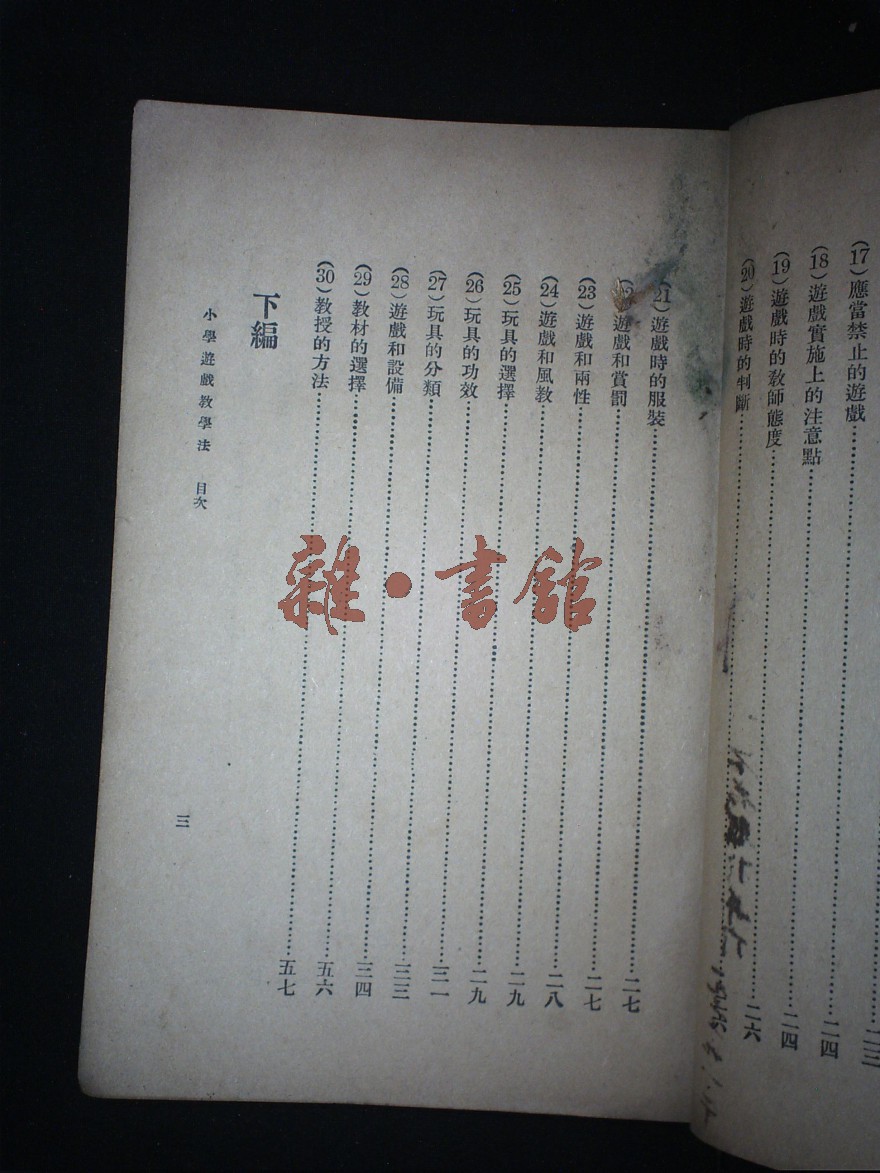 (17)應當禁止的遊戲……二三
(18)遊戲實施上的注意點……二四
(19)遊戲時的教師態度……二四
(20)遊戲時的判斷……二六
(21)遊戲時的服裝……二七
(22)遊戲和賞罰……二七
(23)遊戲和兩性……二八
(24)遊戲和風教……二九
(25)玩具的選擇……二九
(26)玩具的功效……三一
(27)玩具的分類……三三
(28)遊戲和設備……三四
(29)教材的選擇……五六
(30)教授的方法……五七
下編
小學遊戲教學法 目次
三
雜·書館